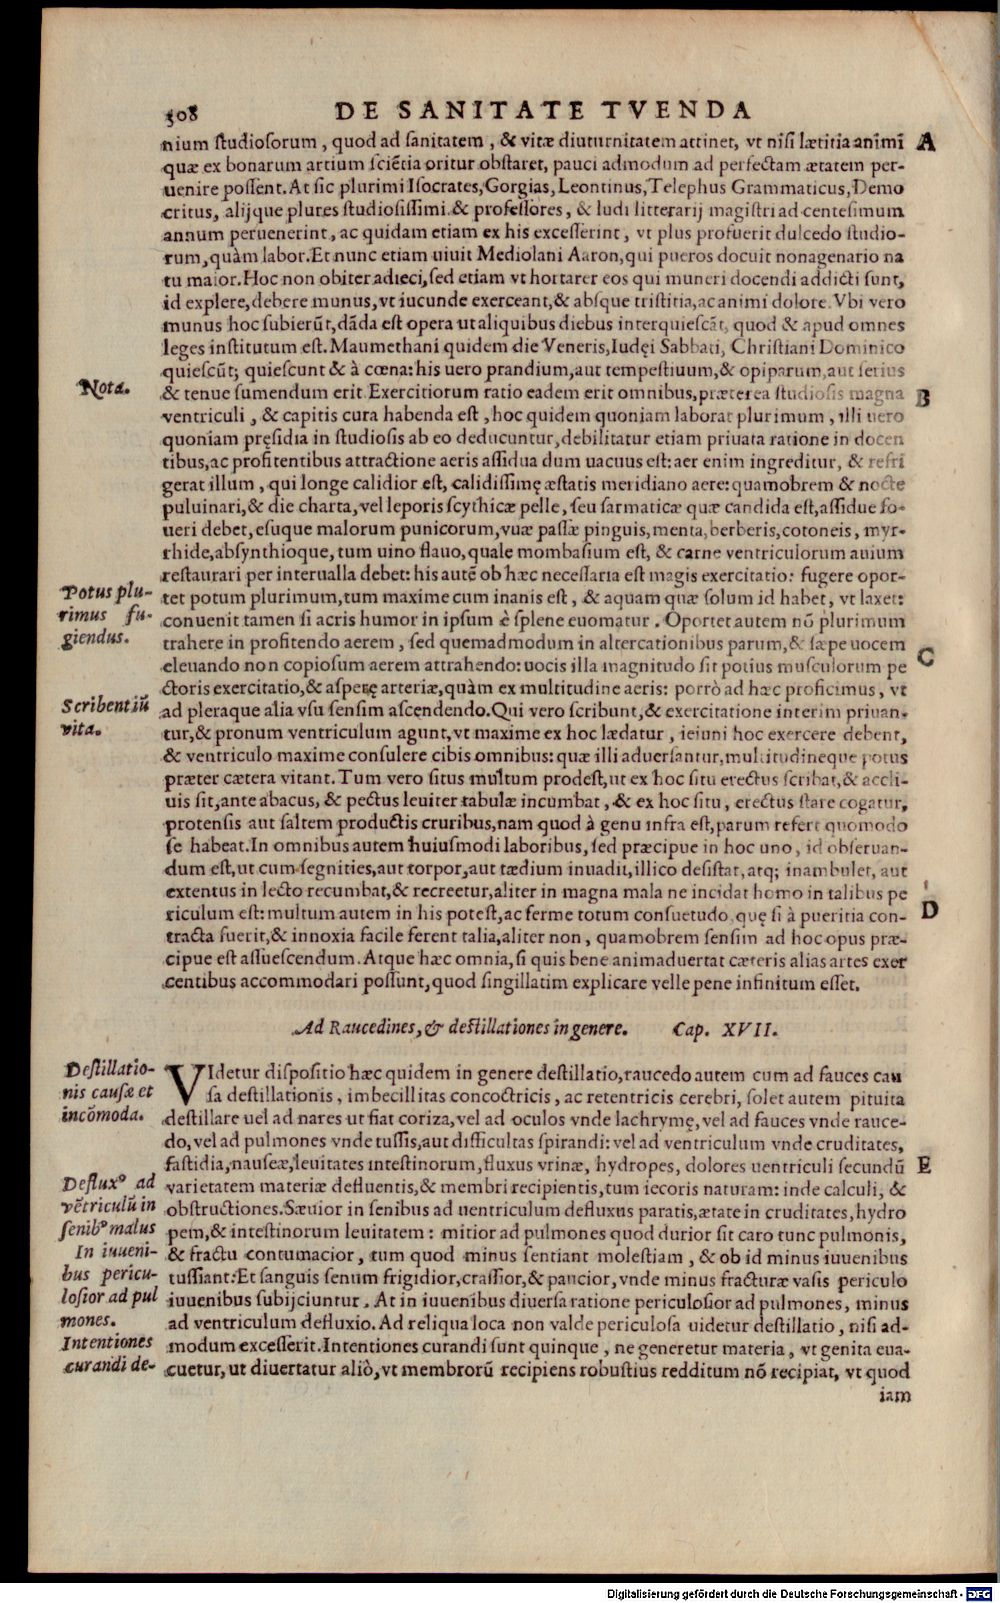 308 DE SANITATE TVENDA
nium studiosorum, quod ad sanitatem, & vitæ diuturnitatem attinet, vt nisi lætitia animi A
quæ ex bonarum artium sciẽtia oritur obstaret, pauci admodum ad perfectam ætatem per-
uenire possent. At sic plurimi Isocrates, Gorgias, Leontinus, Telephus Grammaticus, Demo
critus, alijque plures studiosissimi & professores, & ludi litterarij magistri ad centesimum
annum peruenerint, ac quidam etiam ex his excesserint, vt plus profuerit dulcedo studio-
rum, quàm labor. Et nunc etiam uiuit Mediolani Aaron, qui pueros docuit nonagenario na
tu maior. Hoc non obiter adieci, sed etiam vt hortarer eos qui muneri docendi addicti sunt,
id explere, debere munus, vt iucunde exerceant, & absque tristitia, ac animi dolore. Vbi vero
munus hoc subierũt, dãda est opera ut aliquibus diebus interquiescãt, quod & apud omnes
leges institutum est. Maumethani quidem die Veneris, Iudęi Sabbati, Christiani Dominico
quiescũt; quiescunt & à cœna: his uero prandium, aut tempestiuum, & opiparum, aut serius
Nota.
& tenue sumendum erit. Exercitiorum ratio eadem erit omnibus, præterea studiosis magna B
ventriculi, & capitis cura habenda est, hoc quidem quoniam laborat plurimum, illi uero
quoniam pręsidia in studiosis ab eo deducuntur, debilitatur etiam priuata ratione in docen
tibus, ac profitentibus attractione aeris assidua dum uacuus est: aer enim ingreditur, & refri
gerat illum, qui longe calidior est, calidissimę æstatis meridiano aere: quamobrem & nocte
puluinari, & die charta, vel leporis scythicæ pelle, seu sarmaticæ quæ candida est, assidue fo-
ueri debet, esuque malorum punicorum, vuæ passæ pinguis, menta, berberis, cotoneis, myr-
rhide, absynthioque, tum uino flauo, quale mombasium est, & carne ventriculorum auium
restaurari per interualla debet: his autẽ ob hæc necessaria est magis exercitatio: fugere opor-
Potus plu-
rimus fu-
giendus.
tet potum plurimum, tum maxime cum inanis est, & aquam quæ solum id habet, vt laxet:
conuenit tamen si acris humor in ipsum è splene euomatur. Oportet autem nõ plurimum
trahere in profitendo aerem, sed quemadmodum in altercationibus parum, & sæpe uocem
eleuando non copiosum aerem attrahendo: uocis illa magnitudo sit potius musculorum pe C
ctoris exercitatio, & asperę arteriæ, quàm ex multitudine aeris: porrò ad hæc proficimus, vt
Scribentiũ
vita.
ad pleraque alia vsu sensim ascendendo. Qui vero scribunt, & exercitatione interim priuan-
tur, & pronum ventriculum agunt, vt maxime ex hoc lædatur, ieiuni hoc exercere debent,
& ventriculo maxime consulere cibis omnibus: quæ illi aduersantur, multitudineque potus
præter cætera vitant. Tum vero situs multum prodest, ut ex hoc situ erectus scribat, & accli-
uis sit, ante abacus, & pectus leuiter tabulæ incumbat, & ex hoc situ, erectus stare cogatur,
protensis aut saltem productis cruribus, nam quod à genu infra est, parum refert quomodo
se habeat. In omnibus autem huiusmodi laboribus, sed præcipue in hoc uno, id obseruan-
dum est, ut cum segnities, aut torpor, aut tædium inuadit, illico desistat, atq; inambulet, aut
extentus in lecto recumbat, & recreetur, aliter in magna mala ne incidat homo in talibus pe
riculum est: multum autem in his potest, ac ferme totum consuetudo, quę si à pueritia con- D
tracta fuerit, & innoxia facile ferent talia, aliter non, quamobrem sensim ad hoc opus præ-
cipue est assuescendum. Atque hæc omnia, si quis bene animaduertat cæteris alias artes exer
centibus accommodari possunt, quod singillatim explicare velle pene infinitum esset.
Ad Raucedines, & destillationes in genere. Cap. XVII.
Destillatio-
nis causæ et
incõmoda.
VIdetur dispositio hæc quidem in genere destillatio, raucedo autem cum ad fauces cau
sa destillationis, imbecillitas concoctricis, ac retentricis cerebri, solet autem pituita
destillare uel ad nares ut fiat coriza, vel ad oculos vnde lachrymę, vel ad fauces vnde rauce-
do, vel ad pulmones vnde tussis, aut difficultas spirandi: vel ad ventriculum vnde cruditates,
fastidia, nauseæ, leuitates intestinorum, fluxus vrinæ, hydropes, dolores uentriculi secundũ E
Defluxꝰ ad
vẽtriculũ in
senibꝰ malus
In iuueni-
bus pericu-
losior ad pul
mones.
Intentiones
curandi de-
varietatem materiæ defluentis, & membri recipientis, tum iecoris naturam: inde calculi, &
obstructiones. Sæuior in senibus ad uentriculum defluxus paratis, ætate in cruditates, hydro
pem, & intestinorum leuitatem: mitior ad pulmones quod durior sit caro tunc pulmonis,
& fractu contumacior, tum quod minus sentiant molestiam, & ob id minus iuuenibus
tussiant: Et sanguis senum frigidior, crassior, & paucior, vnde minus fracturæ vasis periculo
iuuenibus subijciuntur. At in iuuenibus diuersa ratione periculosior ad pulmones, minus
ad ventriculum defluxio. Ad reliqua loca non valde periculosa uidetur destillatio, nisi ad-
modum excesserit. Intentiones curandi sunt quinque, ne generetur materia, vt genita eua-
cuetur, ut diuertatur aliò, vt membrorũ recipiens robustius redditum nõ recipiat, vt quod
iam
Digitalisierung gefördert durch die Deutsche Forschungsgemeinschaft - DFG